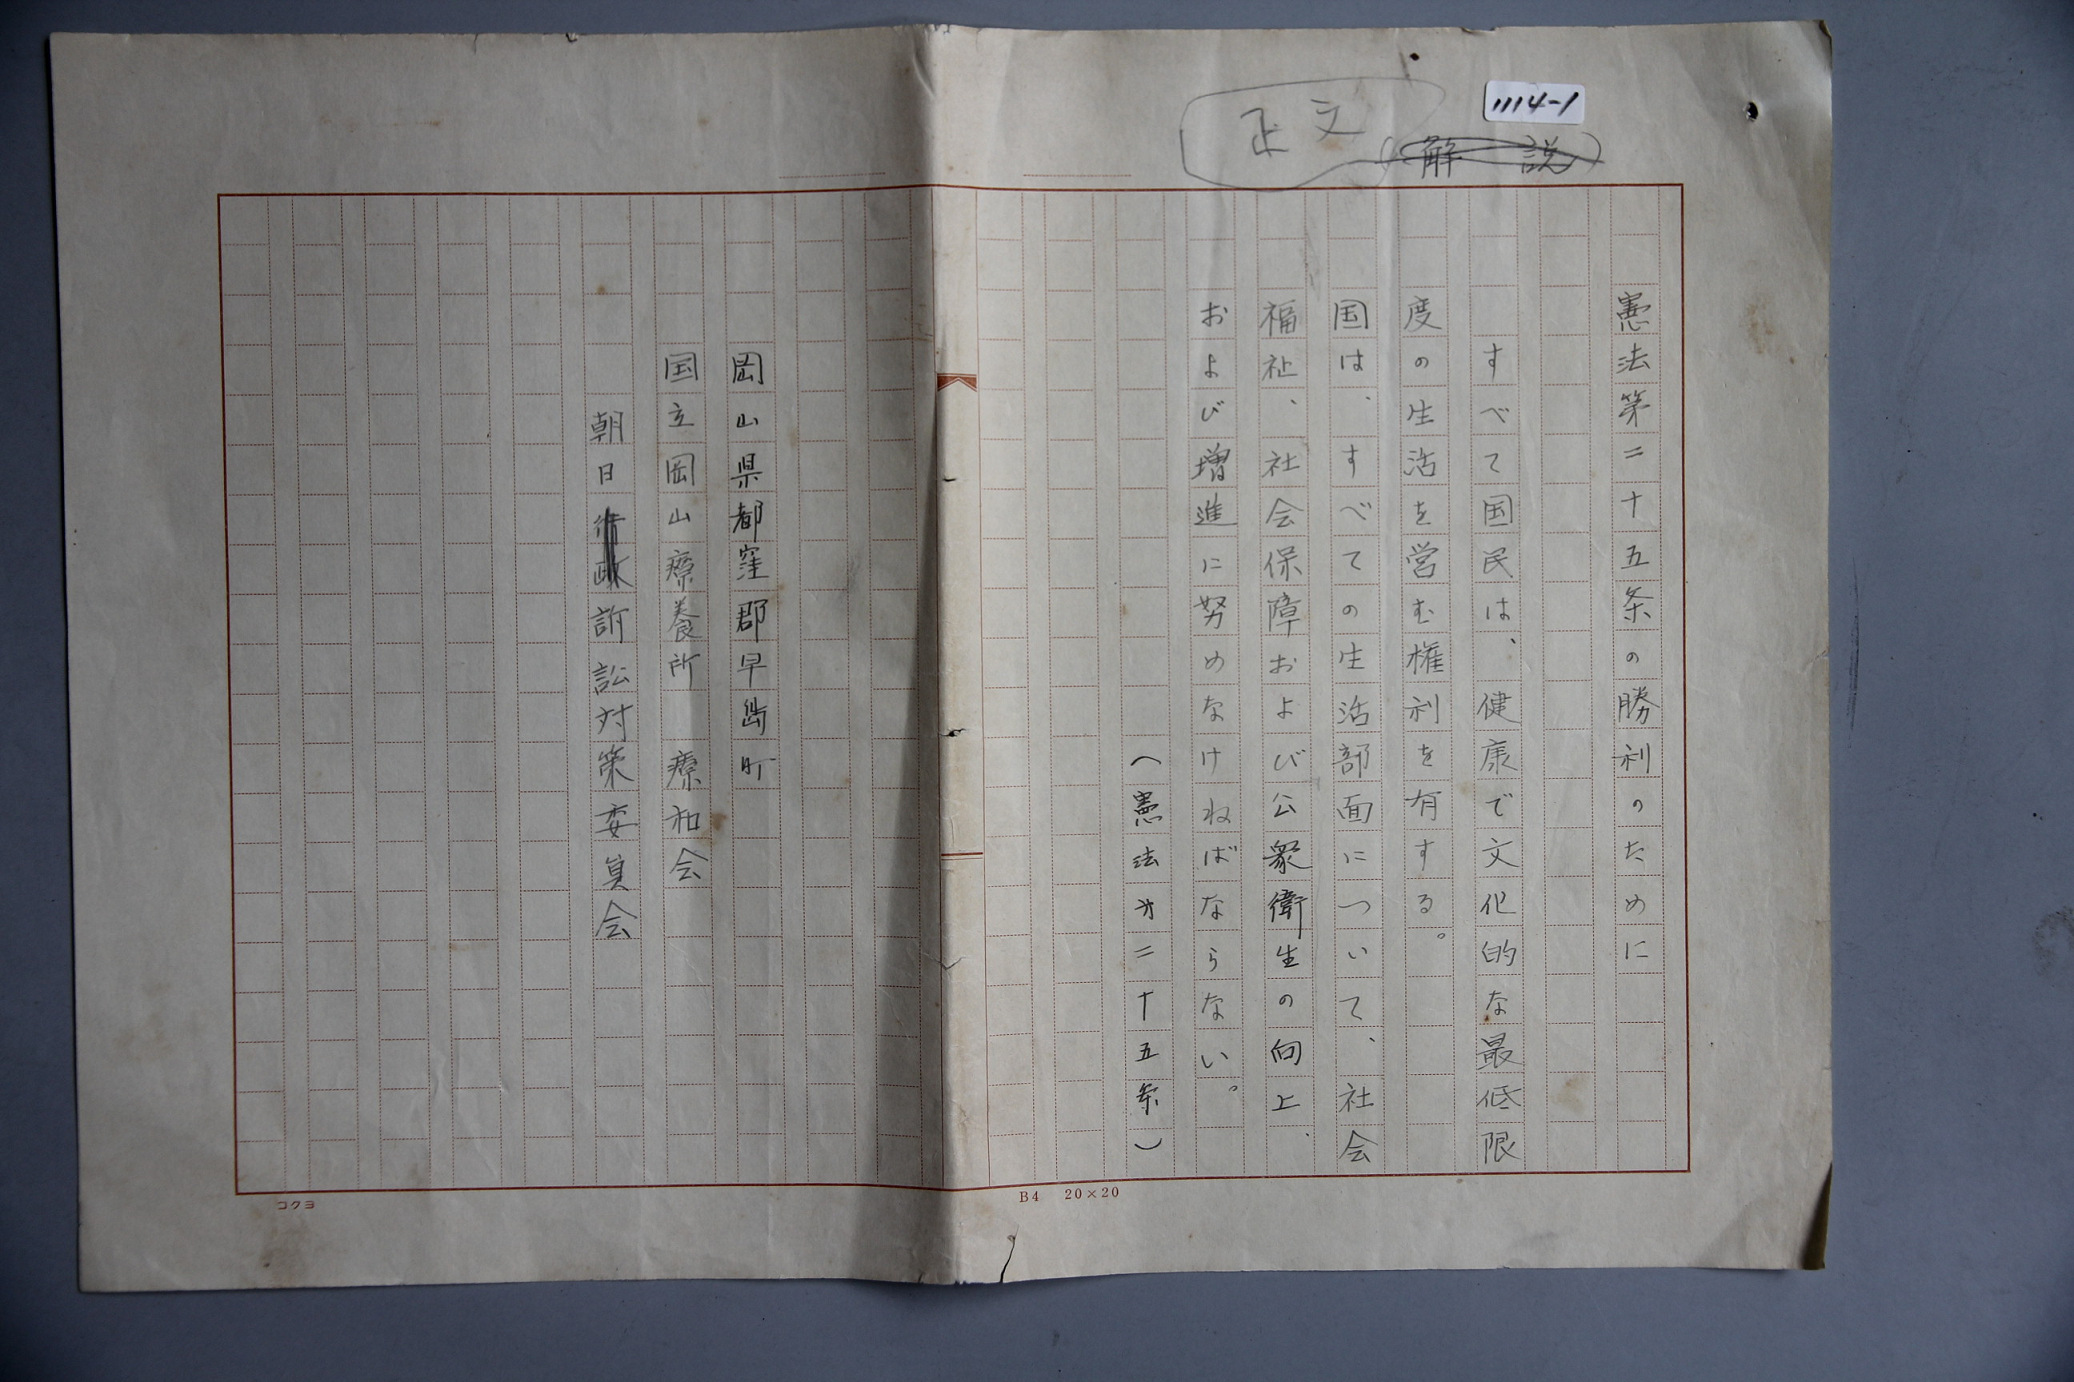 1114-1
正文
(解説)
憲法第二十五条の勝利のために
すべて国民は、健康で文化的な最低限
度の生活を営む権利を有する。
国は、すべての生活部面について、社会
福祉、社会保障および公衆衛生の向上
および増進に努めなければならない。
(憲法㐧二十五条)
岡山県都窪郡早島町
国立岡山療養所　療和会
朝日行政訴訟対策委員会
B4 20×20
コクヨ